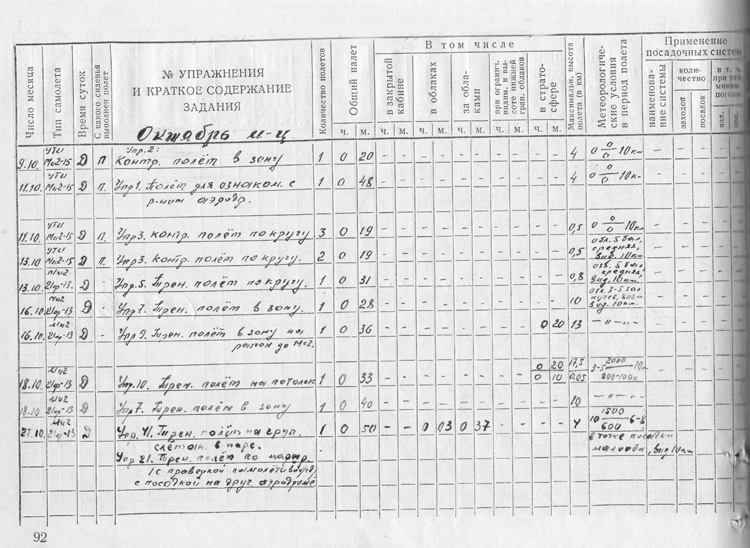 Число месяца
Тип самолета
Время суток
С какого сиденья выполнен полет
№ УПРАЖНЕНИЯ
И КРАТКОЕ СОДЕРЖАНИЕ
ЗАДАНИЯ
Количество полетов
Общий налет
В том числе
в закрытой кабине
в облаках
за облаками
при огранич. видим. и высоте нижней гран. облаков
в стратосфере
Максимальн. высота полета (в км)
Метеорологические условия в период полета
Применение
посадочных систем
наименование системы
количество
заходов
посадок
ч. м. ч. м. ч. м. ч. м. ч. м. ч. м.
Октябрь м-ц
9.10. УТИ Миг-15 Д П Упр.2: Контр. полёт в зону 1 0 20 – – – – – – – – – – 4 0 0/0 10 км – – – – –
11.10. УТИ Миг-15 Д П. Упр1. Полёт для ознаком. с 1 0 48 – – – – – – – – – – 4 0 0/0 10 км – – – – –
р-ном аэродр.
11.10. УТИ Миг-15 Д П. Упр3. контр. полёт по кругу. 3 0 19 – – – – – – – – – – 0,5 0 0/0 10 км – – – – –
13.10. УТИ Миг-15 Д П. Упр3. контр. полёт по кругу. 2 0 19 – – – – – – – – – – 0,5 обл. 5 бал, средняя, вид. 10км – – – – –
13.10. Миг 21ф-13. Д - Упр.5. Трен. полёт по кругу. 1 0 31 – – – – – – – – – – 0,8 обл. 5 бал средняя, вид. 10км – – – – –
16.10. Миг 21ф-13 Д - Упр7. Трен. полёт в зону. 1 0 28 – – – – – – – – – – 10 обл. 3-5 бал вид. 10км. – – – – –
16.10. Миг 21ф-13 Д - Упр9. Трен. полёт в зону на 1 0 36 – – – – – – – – 0 20 13 – " – " – – – – – –
разгон до М=2.
18.10. Миг 21ф-13 Д - Упр.10. Трен. полёт на потолок 1 0 33 – – – – – – – – 0 20 0 10 17,5 0,05 3-5 2000/800-1000 10 – – – – –
18.10. Миг 21ф-13 Д - Упр7. Трен. полёт в зону 1 0 40 – – – – – – – – – – 10 – " – " – – – – – –
27.10. Миг 21ф-13 Д - Упр. 41. Трен. полёт на груп. 1 0 50 – – 0 03 0 37 – – – – 4 10 1500/600 6-8 – – – – –
слётан. в паре. в точке посадки
Упр 21. Трен. полёт по маршр. вид 10 км
(с проверкой
с посадкой на друг. аэродроме
92